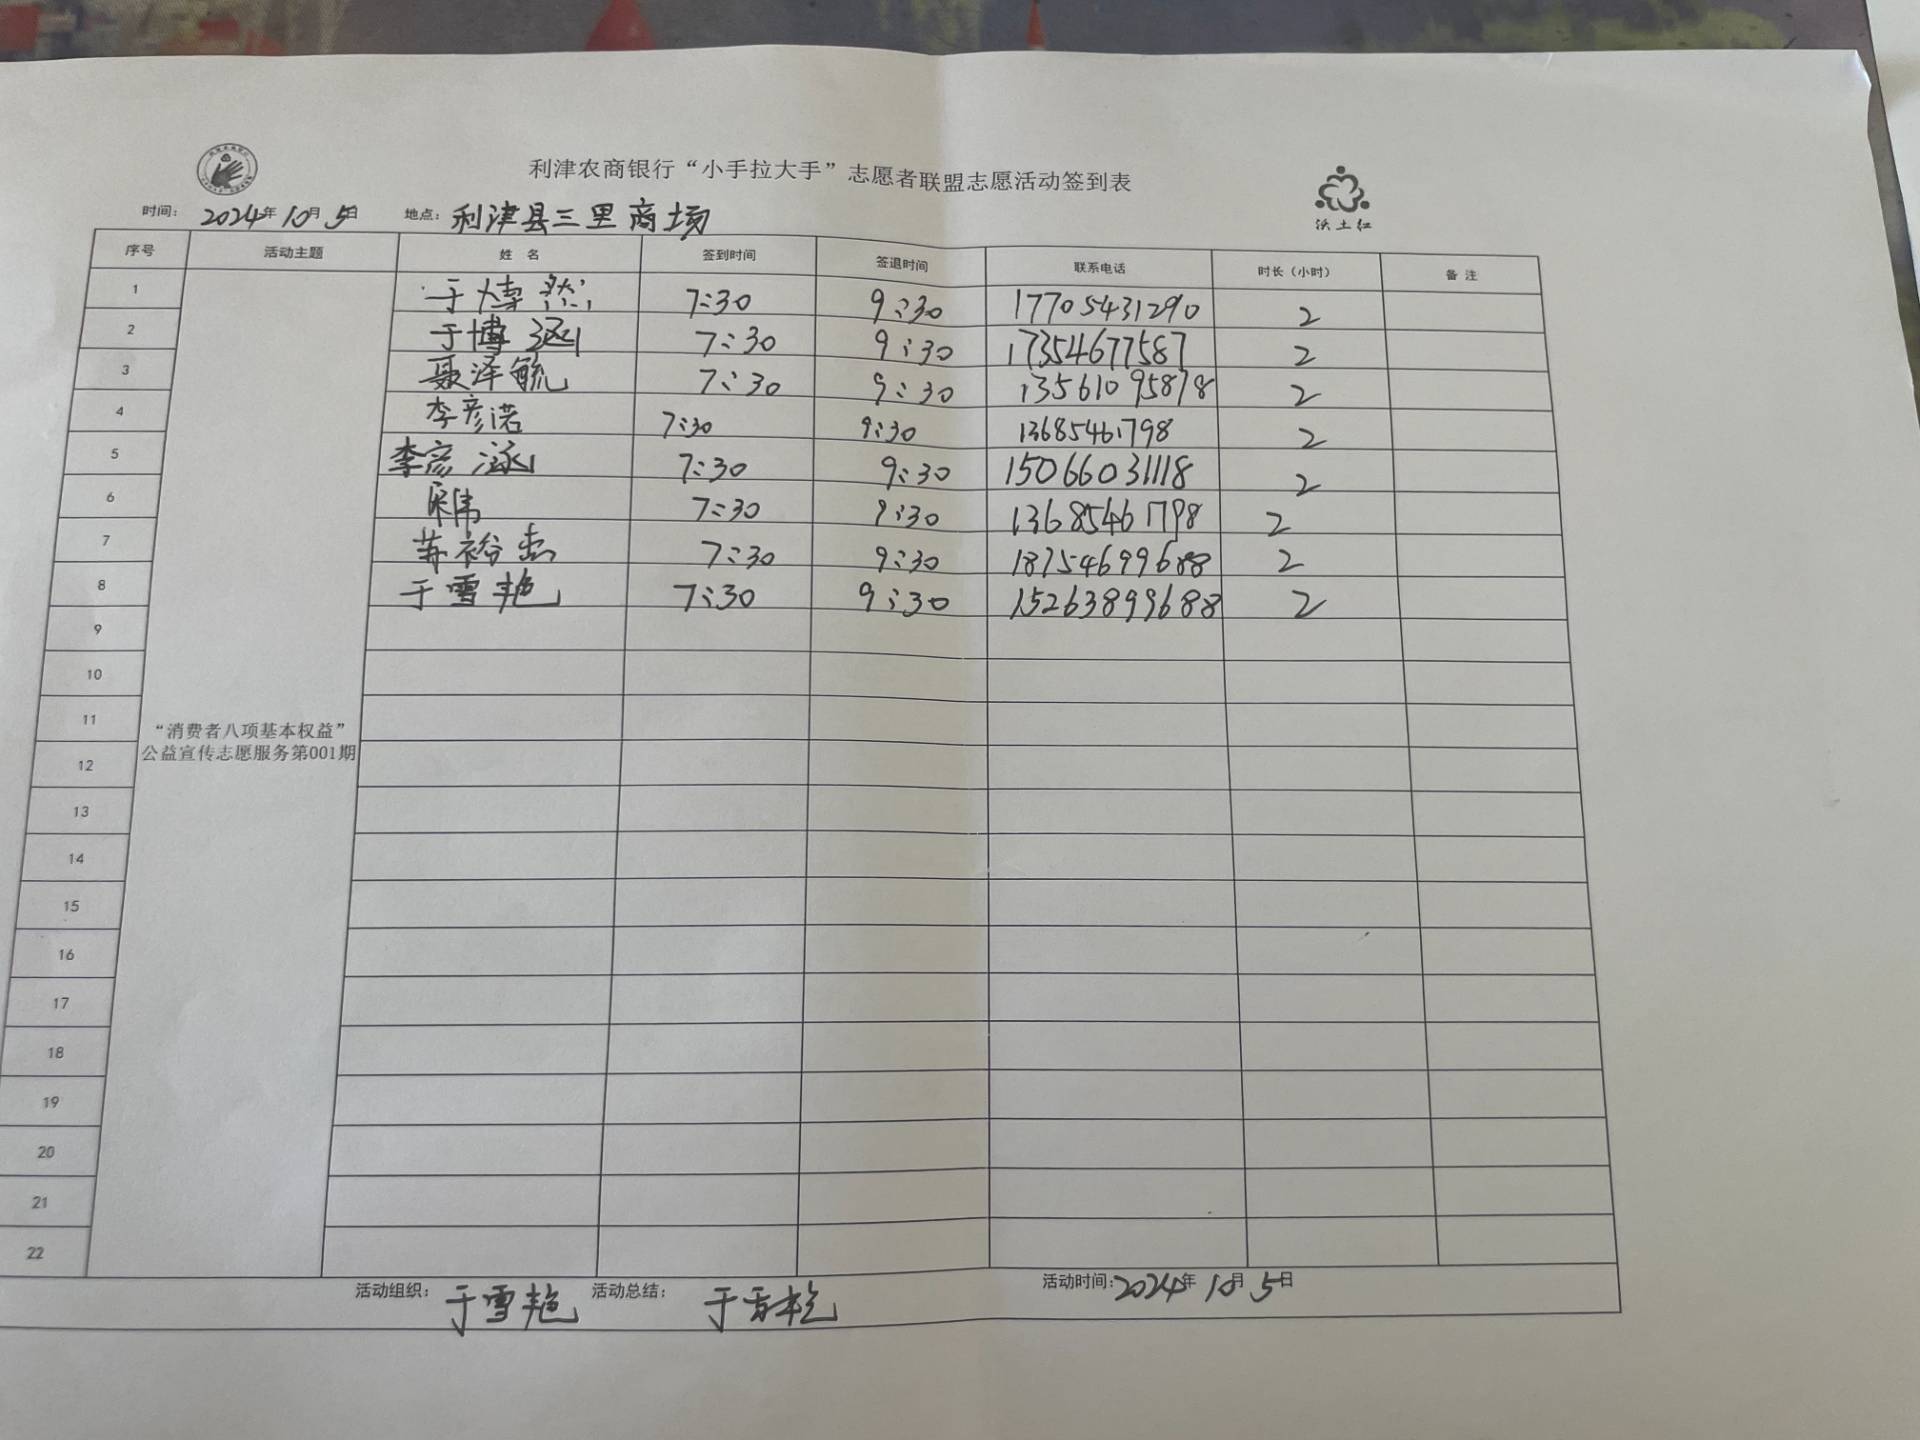 利津农商银行“小手拉大手”志愿者联盟志愿活动签到表
沃土红
时间： 2024年10月5日 地点： 利津县三里商场
序号 活动主题 姓名 签到时间 签退时间 联系电话 时长（小时） 备注
“消费者八项基本权益”
公益宣传志愿服务第001期
1 于博然 7:30 9:30 17705431290 2
2 于博涵 7:30 9:30 17354677587 2
3 聂泽毓 7:30 9:30 13561095878 2
4 李彦诺 7:30 9:30 13685461798 2
5 李彦泳 7:30 9:30 15066031118 2
6 7:30 9:30 13685461798 2
7 苏裕 7:30 9:30 18754699688 2
8 于雪艳 7:30 9:30 15263899688 2
9
10
11
12
13
14
15
16
17
18
19
20
21
22
活动组织： 于雪艳 活动总结： 于雪艳 活动时间：2024年10月5日